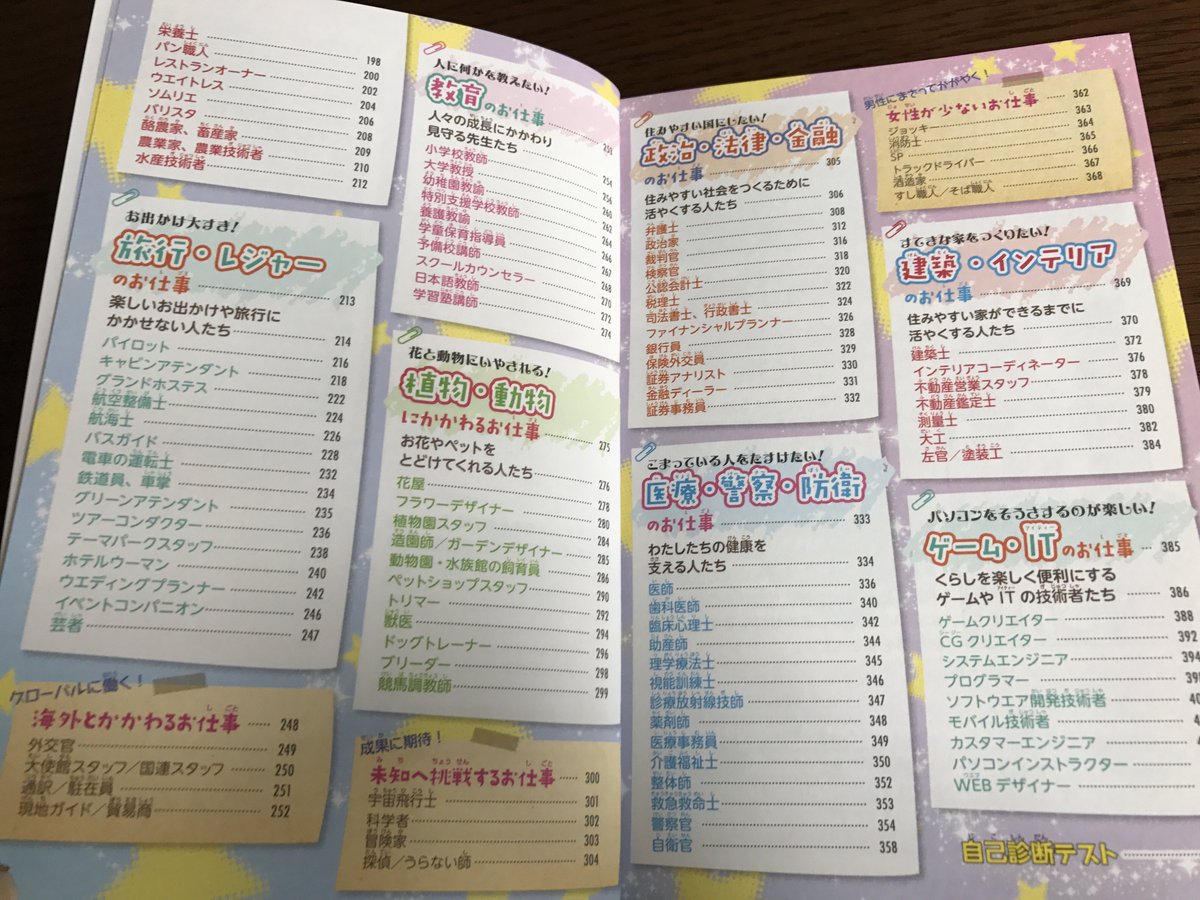 栄養士 198
パン職人 200
レストランオーナー 202
ウエイトレス 204
ソムリエ 206
バリスタ 208
酪農家、畜産家 209
農業家、農業技術者 210
水産技術者 212
お出かけ大すき!
旅行・レジャー
のお仕事 213
楽しいお出かけや旅行に
かかせない人たち 214
パイロット 216
キャビンアテンダント 218
グランドホステス 222
航空整備士 224
航海士 226
バスガイド 228
電車の運転士 232
鉄道員、車掌 234
グリーンアテンダント 235
ツアーコンダクター 236
テーマパークスタッフ 238
ホテルウーマン 240
ウエディングプランナー 242
イベントコンパニオン 246
芸者 247
グローバルに働く!
海外とかかわるお仕事 248
外交官 249
大使館スタッフ/国連スタッフ 250
通訳/駐在員 251
現地ガイド/貿易商 252
人に何かを教えたい!
教育のお仕事 253
人々の成長にかかわり
見守る先生たち 254
小学校教師 256
大学教授 260
幼稚園教諭 262
特別支援学校教師 264
養護教諭 266
学童保育指導員 267
予備校講師 268
スクールカウンセラー 270
日本語教師 272
学習塾講師 274
花と動物にいやされる!
植物・動物
にかかわるお仕事 275
お花やペットを
とどけてくれる人たち 276
花屋 278
フラワーデザイナー 280
植物園スタッフ 284
造園師/ガーデンデザイナー 285
動物園・水族館の飼育員 286
ペットショップスタッフ 290
トリマー 292
獣医 294
ドッグトレーナー 296
ブリーダー 298
競馬調教師 299
成果に期待!
未知へ挑戦するお仕事 300
宇宙飛行士 301
科学者 302
冒険家 303
探偵/うらない師 304
住みやすい国にしたい!
政治・法律・金融
のお仕事 305
住みやすい社会をつくるために
活やくする人たち 306
弁護士 308
政治家 312
裁判官 316
検察官 318
公認会計士 320
税理士 322
司法書士、行政書士 324
ファイナンシャルプランナー 326
銀行員 328
保険外交員 329
証券アナリスト 330
金融ディーラー 331
証券事務員 332
こまっている人をたすけたい!
医療・警察・防衛
のお仕事 333
わたしたちの健康を
支える人たち 334
医師 336
歯科医師 340
臨床心理士 342
助産師 344
理学療法士 345
視能訓練士 346
診療放射線技師 347
薬剤師 348
医療事務員 349
介護福祉士 350
整体師 352
救急救命士 353
警察官 354
自衛官 358
男性にまざってかがやく!
女性が少ないお仕事 362
ジョッキー 363
消防士 364
SP 365
トラックドライバー 366
酒造家 367
すし職人/そば職人 368
すてきな家をつくりたい!
建築・インテリア
のお仕事 369
住みやすい家ができるまでに
活やくする人たち 370
建築士 372
インテリアコーディネーター 376
不動産営業スタッフ 378
不動産鑑定士 379
測量士 380
大工 382
左官/塗装工 384
パソコンをそうさするのが楽しい!
ゲーム・ITのお仕事 385
くらしを楽しく便利にする
ゲームやITの技術者たち 386
ゲームクリエイター 388
CGクリエイター 392
システムエンジニア 394
プログラマー
ソフトウエア開発技術者
モバイル技術者
カスタマーエンジニア
パソコンインストラクター
WEBデザイナー
自己診断テスト